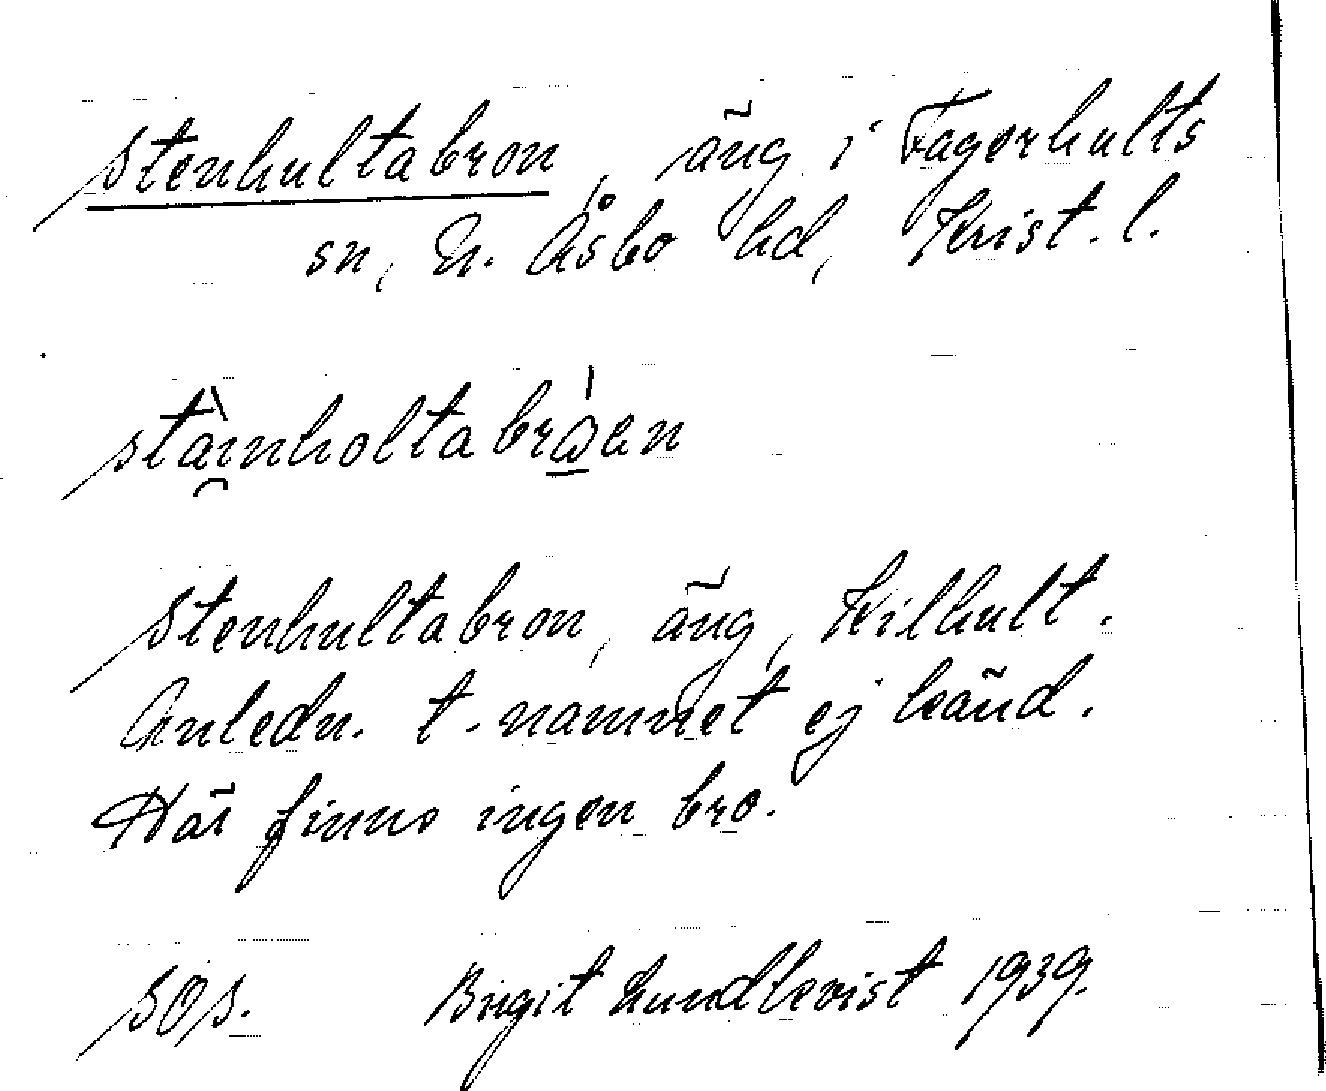 Stenhultabron, äng i Fagerhults
sn, N. Åsbo hd, Krist. l.
stàinholtabrⱺ́en
Stenhultabron, äng, Kilhult.
Anledn. t. namnet ej känd.
Här finns ingen bro.
SOS. Birgit Lundkvist 1939.